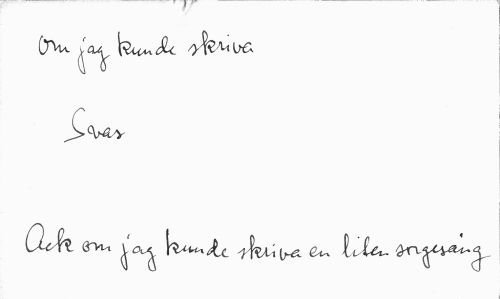 Om jag kunde skriva
Svar
Ack om jag kunde skriva en liten sorgesång